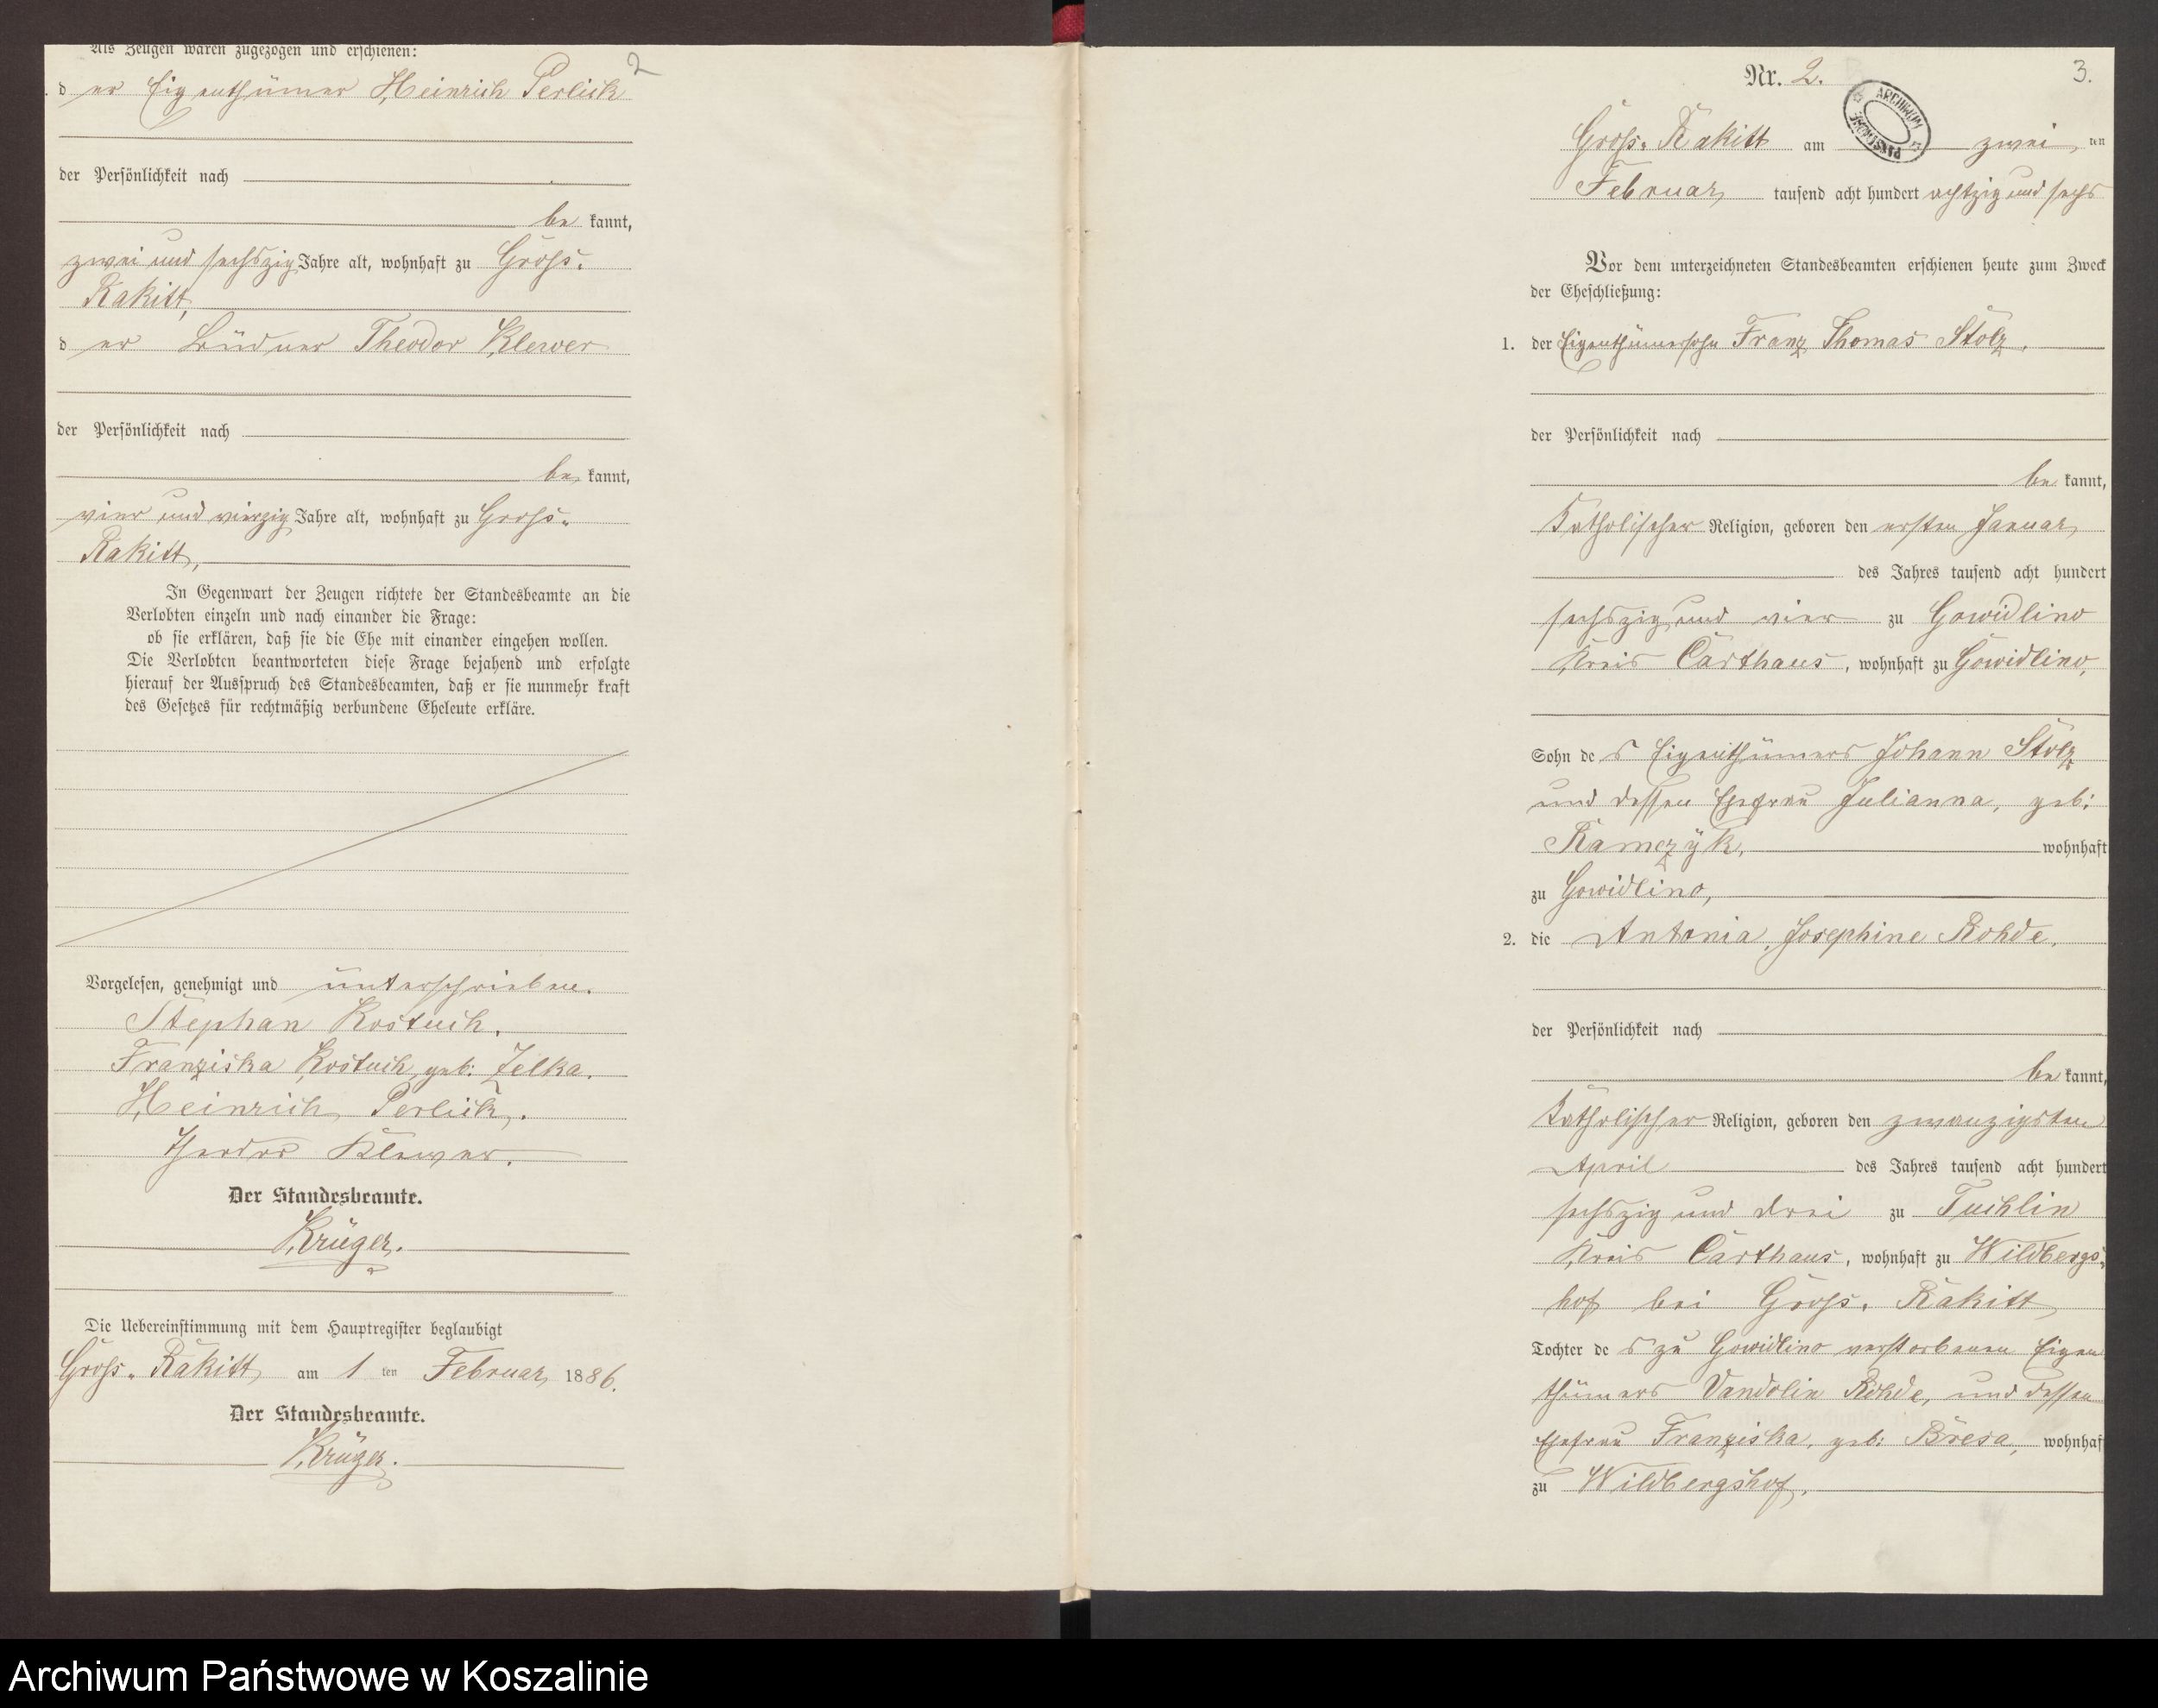 Als Zeugen waren zugezogen und erschienen:
2
der Eigenthümer Heinrich Perlick
der Persönlichkeit nach
be kannt,
zwei und sechszig Jahre alt, wohnhaft zu Groß-
Rakitt,
der Büdner Theodor Klewer
der Persönlichkeit nach
be kannt,
vier und vierzig Jahre alt, wohnhaft zu Groß-
Rakitt,
In Gegenwart der Zeugen richtete der Standesbeamte an die
Verlobten einzeln und nach einander die Frage:
ob sie erklären, daß sie die Ehe mit einander eingehen wollen.
Die Verlobten beantworteten diese Frage bejahend und erfolgte
hierauf der Ausspruch des Standesbeamten, daß er sie nunmehr kraft
des Gesetzes für rechtmäßig verbundene Eheleute erkläre.
Vorgelesen, genehmigt und unterschrieben.
Stephan Kostuch.
Franziska Kostuch, geb: Zelka.
Heinrich Perlick.
Theodor Klewer.
Der Standesbeamte.
Krüger.
Die Uebereinstimmung mit dem Hauptregister beglaubigt
Groß-Rakitt, am 1 ten Februar 1886.
Der Standesbeamte.
Krüger.
Nr. 2.
3.
ARCHIWUM PAŃSTWOWE
Groß-Rakitt am zwei ten
Februar tausend acht hundert achtzig und sechs
Vor dem unterzeichneten Standesbeamten erschienen heute zum Zweck
der Eheschließung:
1. der Eigenthümersohn Franz Thomas Stolz,
der Persönlichkeit nach
be kannt,
Katholischer Religion, geboren den ersten Januar
des Jahres tausend acht hundert
sechszig und vier zu Gowidlino
Kreis Carthaus, wohnhaft zu Gowidlino,
Sohn des Eigenthümers Johann Stolz
und dessen Ehefrau Julianna, geb:
Ramczyk, wohnhaft
zu Gowidlino,
2. die Antonia Josephine Rohde,
der Persönlichkeit nach
be kannt,
Katholischer Religion, geboren den zwanzigsten
April des Jahres tausend acht hundert
sechszig und drei zu Tuchlin
Kreis Carthaus, wohnhaft zu Wildbergs-
hof bei Groß-Rakitt,
Tochter des zu Gowidlino verstorbenen Eigen
thümers Vandolin Rohde, und dessen
Ehefrau Franziska, geb: Bresa, wohnhaft
zu Wildbergshof.
Archiwum Państwowe w Koszalinie